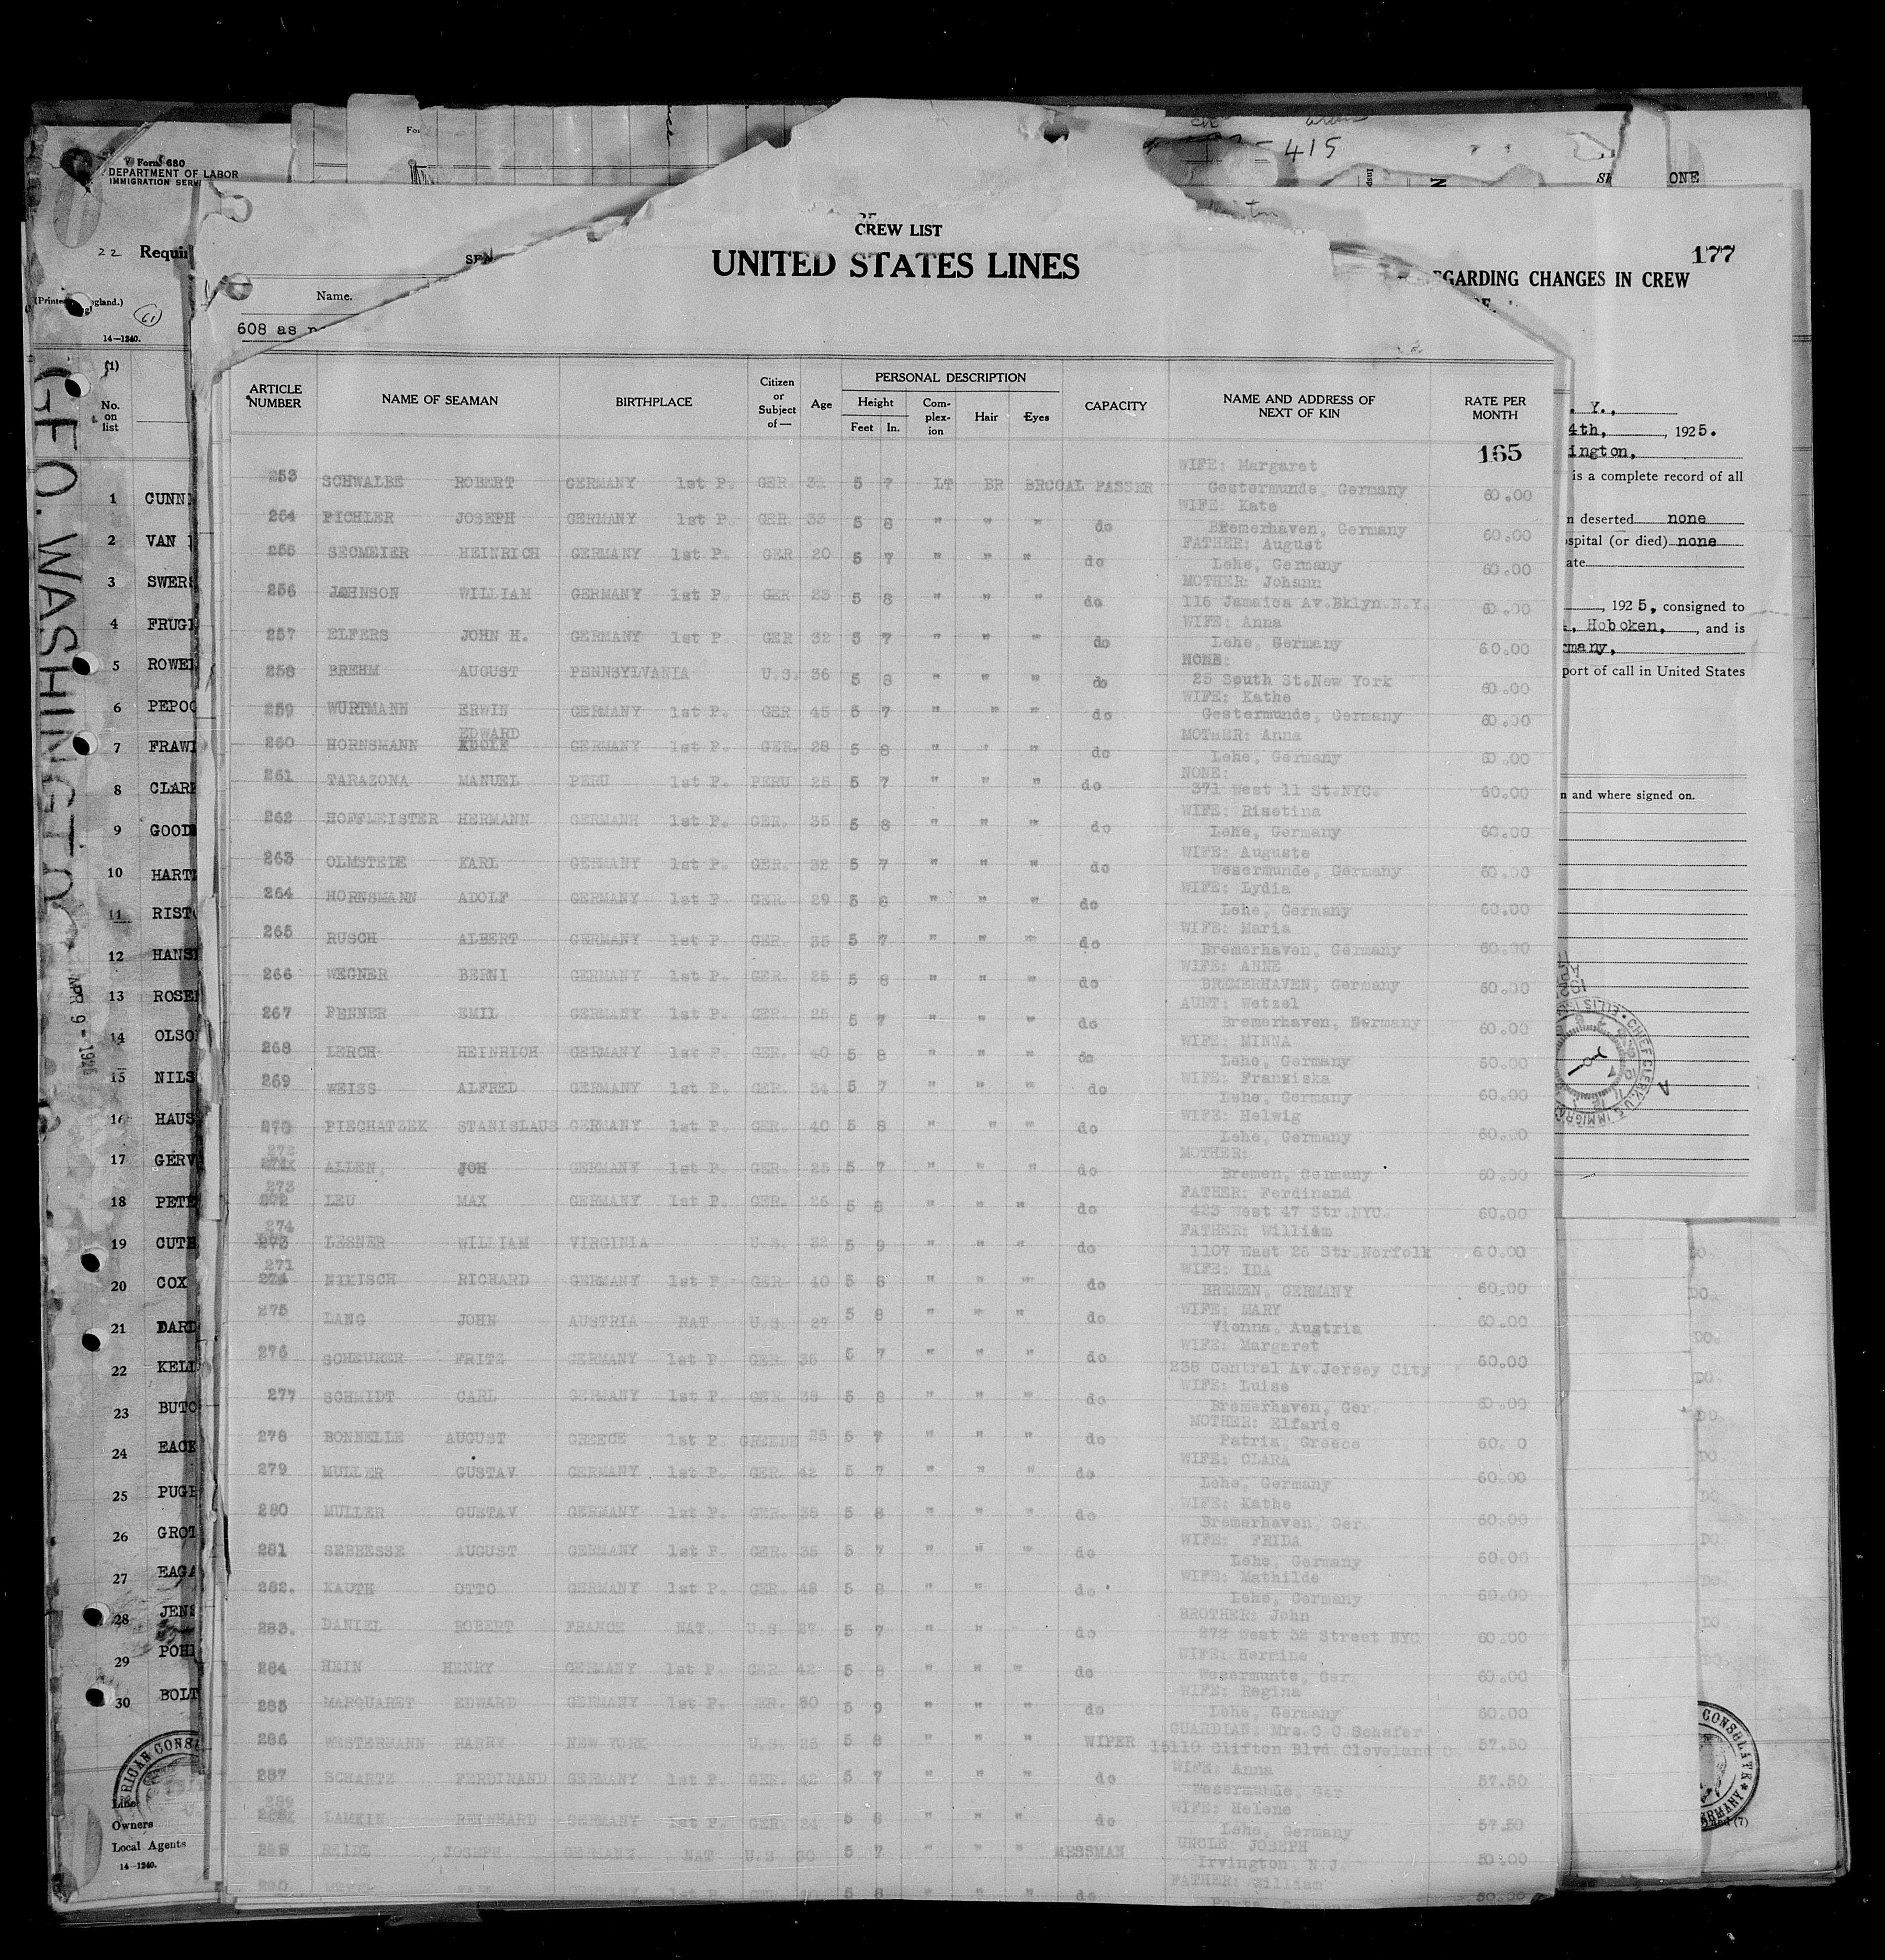 Form 680
DEPARTMENT OF LABOR
IMMIGRATION SERV
22 Requi
14-1240.
(1)
No.
on
list
GEO. WASHINGTO
APR 9 - 192
1 GUNN
2 VAN
3 SWER
4 FRUG
5 ROWE
6 PEPO
7 FRAW
8 CLAR
9 GOOD
10 HART
11 RIST
12 HANS
13 ROSE
14 OLSO
15 NILS
16 HAUS
17 GERV
18 PETE
19 CUTH
20 COX
21 DARD
22 KELL
23 BUTC
24 EACK
25 PUGH
26 GROT
27 EAGA
28 JENS
29 POHL
30 BOLT
RICAN CONS
Line
Owners
Local Agents
14-1240.
- 415
ONE
CREW LIST
UNITED STATES LINES
Name.
608 as
ARTICLE NUMBER NAME OF SEAMAN BIRTHPLACE Citizen or Subject of— Age PERSONAL DESCRIPTION Height Feet In. Complexion Hair Eyes CAPACITY NAME AND ADDRESS OF NEXT OF KIN RATE PER MONTH
165
WIFE: Margaret
253 SCHWALBE ROBERT GERMANY 1st P. GER. 5 7 LT BR BR COAL PASSER Gestermunde, Germany 60.00
WIFE: Kate
254 PICHLER JOSEPH GERMANY 1st P. GER. 33 5 8 " " " do Bremerhaven, Germany 60.00
FATHER: August
255 SECMEIER HEINRICH GERMANY 1st P. GER 20 5 7 " " " do Lehe, Germany 60.00
MOTHER: Johann
256 JOHNSON WILLIAM GERMANY 1st P. GER 23 5 8 " " " do 116 Jamaica Av.Bklyn.N.Y. 60.00
WIFE: Anna
257 ELFERS JOHN H. GERMANY 1st P. GER 32 5 7 " " " do Lehe, Germany 60.00
258 BREHM AUGUST PENNSYLVANIA U.S. 36 5 8 " " " do 25 South St.New York 60.00
WIFE: Kathe
259 WURTMANN ERWIN GERMANY 1st P. GER 45 5 7 " " " do Gestermunde, Germany 60.00
EDWARD MOTHER: Anna
260 HORNSMANN ADOLF GERMANY 1st P. GER. 28 5 8 " " " do Lehe, Germany 60.00
NONE:
261 TARAZONA MANUEL PERU 1st P. PERU 25 5 7 " " " do 371 West 11 St.NYC. 60.00
WIFE: Risetina
262 HOFFMEISTER HERMANN GERMANH 1st P. GER. 35 5 8 " " " do Lehe, Germany 60.00
WIFE: Auguste
263 OLMSTEDE KARL GERMANY 1st P. GER. 32 5 7 " " " do Wesermunde, Germany 60.00
WIFE: Lydia
264 HORNSMANN ADOLF GERMANY 1st P. GER. 29 5 8 " " " do Lehe, Germany 60.00
WIFE: Maria
265 RUSCH ALBERT GERMANY 1st P. GER. 35 5 7 " " " do Bremerhaven, Germany 60.00
WIFE: ANNE
266 WEGNER BERNI GERMANY 1st P. GER. 25 5 8 " " " do BREMERHAVEN, Germany 60.00
AUNT: Wetzel
267 PENNER EMIL GERMANY 1st P. GER. 25 5 7 " " " do Bremerhaven, Germany 60.00
WIFE: MINNA
268 LERCH HEINRICH GERMANY 1st P. GER. 40 5 8 " " " do Lehe, Germany 60.00
WIFE: Franziska
269 WEISS ALFRED GERMANY 1st P. GER. 34 5 7 " " " do Lehe, Germany 60.00
WIFE: Helwig
270 PIECHATZEK STANISLAUS GERMANY 1st P. GER. 40 5 8 " " " do Lehe, Germany 60.00
272 MOTHER:
ALLEN, JOH GERMANY 1st P. GER. 25 5 7 " " " do Bremen, Germany 60.00
273 FATHER: Ferdinand
272 LEU MAX GERMANY 1st P. GER. 26 5 8 " " " do 423 West 47 Str.NYC. 60.00
274 FATHER: William
273 LESNER WILLIAM VIRGINIA U.S. 32 5 9 " " " do 1107 East 28 Str.Norfolk 60.00
271 WIFE: IDA
274 NIKISCH RICHARD GERMANY 1st P. GER. 40 5 8 " " " do BREMEN, GERMANY 60.00
WIFE: MARY
275 LANG JOHN AUSTRIA NAT. U.S. 27 5 8 " " " do Vienna, Austria 60.00
WIFE: Margaret
276 SCHEURER FRITZ GERMANY 1st P. GER. 35 5 7 " " " do 238 Central Av.Jersey City 60.00
WIFE: Luise
277 SCHMIDT CARL GERMANY 1st P. GER. 38 5 8 " " " do Bremerhaven, Ger. 60.00
MOTHER: Elfarie
278 BONNELLE AUGUST GREECE 1st P. GREEDE 25 5 7 " " " do Patria, Greece 60. 0
WIFE: CLARA
279 MULLER GUSTAV GERMANY 1st P. GER. 42 5 7 " " " do Lehe, Germany 60.00
WIFE: Kathe
280 MULLER GUSTAV GERMANY 1st P. GER. 38 5 8 " " " do Bremerhaven, Ger. 60.00
WIFE: FRIDA
281 SEBBESSE AUGUST GERMANY 1st P. GER. 35 5 7 " " " do Lehe, Germany 60.00
WIFE: Mathilde
282. KAUTH OTTO GERMANY 1st P. GER. 48 5 8 " " do Lehe, Germany 60.00
BROTHER: John
283. DANIEL ROBERT FRANCE NAT. U.S. 27 5 7 " " " do 272 West 38 Street NYC 60.00
WIFE: Hermine
284 HEIN HENRY GERMANY 1st P. GER. 42 5 8 " " " do Wesermunte, Ger. 60.00
WIFE: Regina
285 MARQUARET EDWARD GERMANY 1st P. GER. 50 5 9 " " " do Lehe, Germany 60.00
GUARDIAN: Mrs.C C.Schafer
286 WESTERMANN HARRY NEW YORK U.S. 26 5 8 " " " WIPER 15110 Clifton Blvd.Cleveland O. 57.50
WIFE: Anna
287 SCHARTZ FERDINAND GERMANY 1st P. GER. 42 5 7 " " " do Wesermunde, Ger 57.50
289 WIFE: Helene
LAMKIN REINHARD GERMANY 1st P. GER. 24 5 8 " " " do Lehe, Germany 57.50
UNCLE: JOSEPH
JOSEPH GERMANY NAT U.S 30 5 7 " " " MESSMAN Irvington, N.J. 50.00
FATHER: William
GERMANY 1st P. 5 8 " " " do Germany 50.00
177
EGARDING CHANGES IN CREW
. Y.,
4th, , 1925.
ington,
is a complete record of all
n deserted none
spital (or died) none
ate
, 1925, consigned to
, Hoboken, , and is
many,
port of call in United States
n and where signed on.
ELLIS ISL
CHIEF CLERK, U.S. IMMIGR
DO
DO
DO
DO
DO
DO
DO
DO
DO
DO
DO
CONSULATE
RMANY